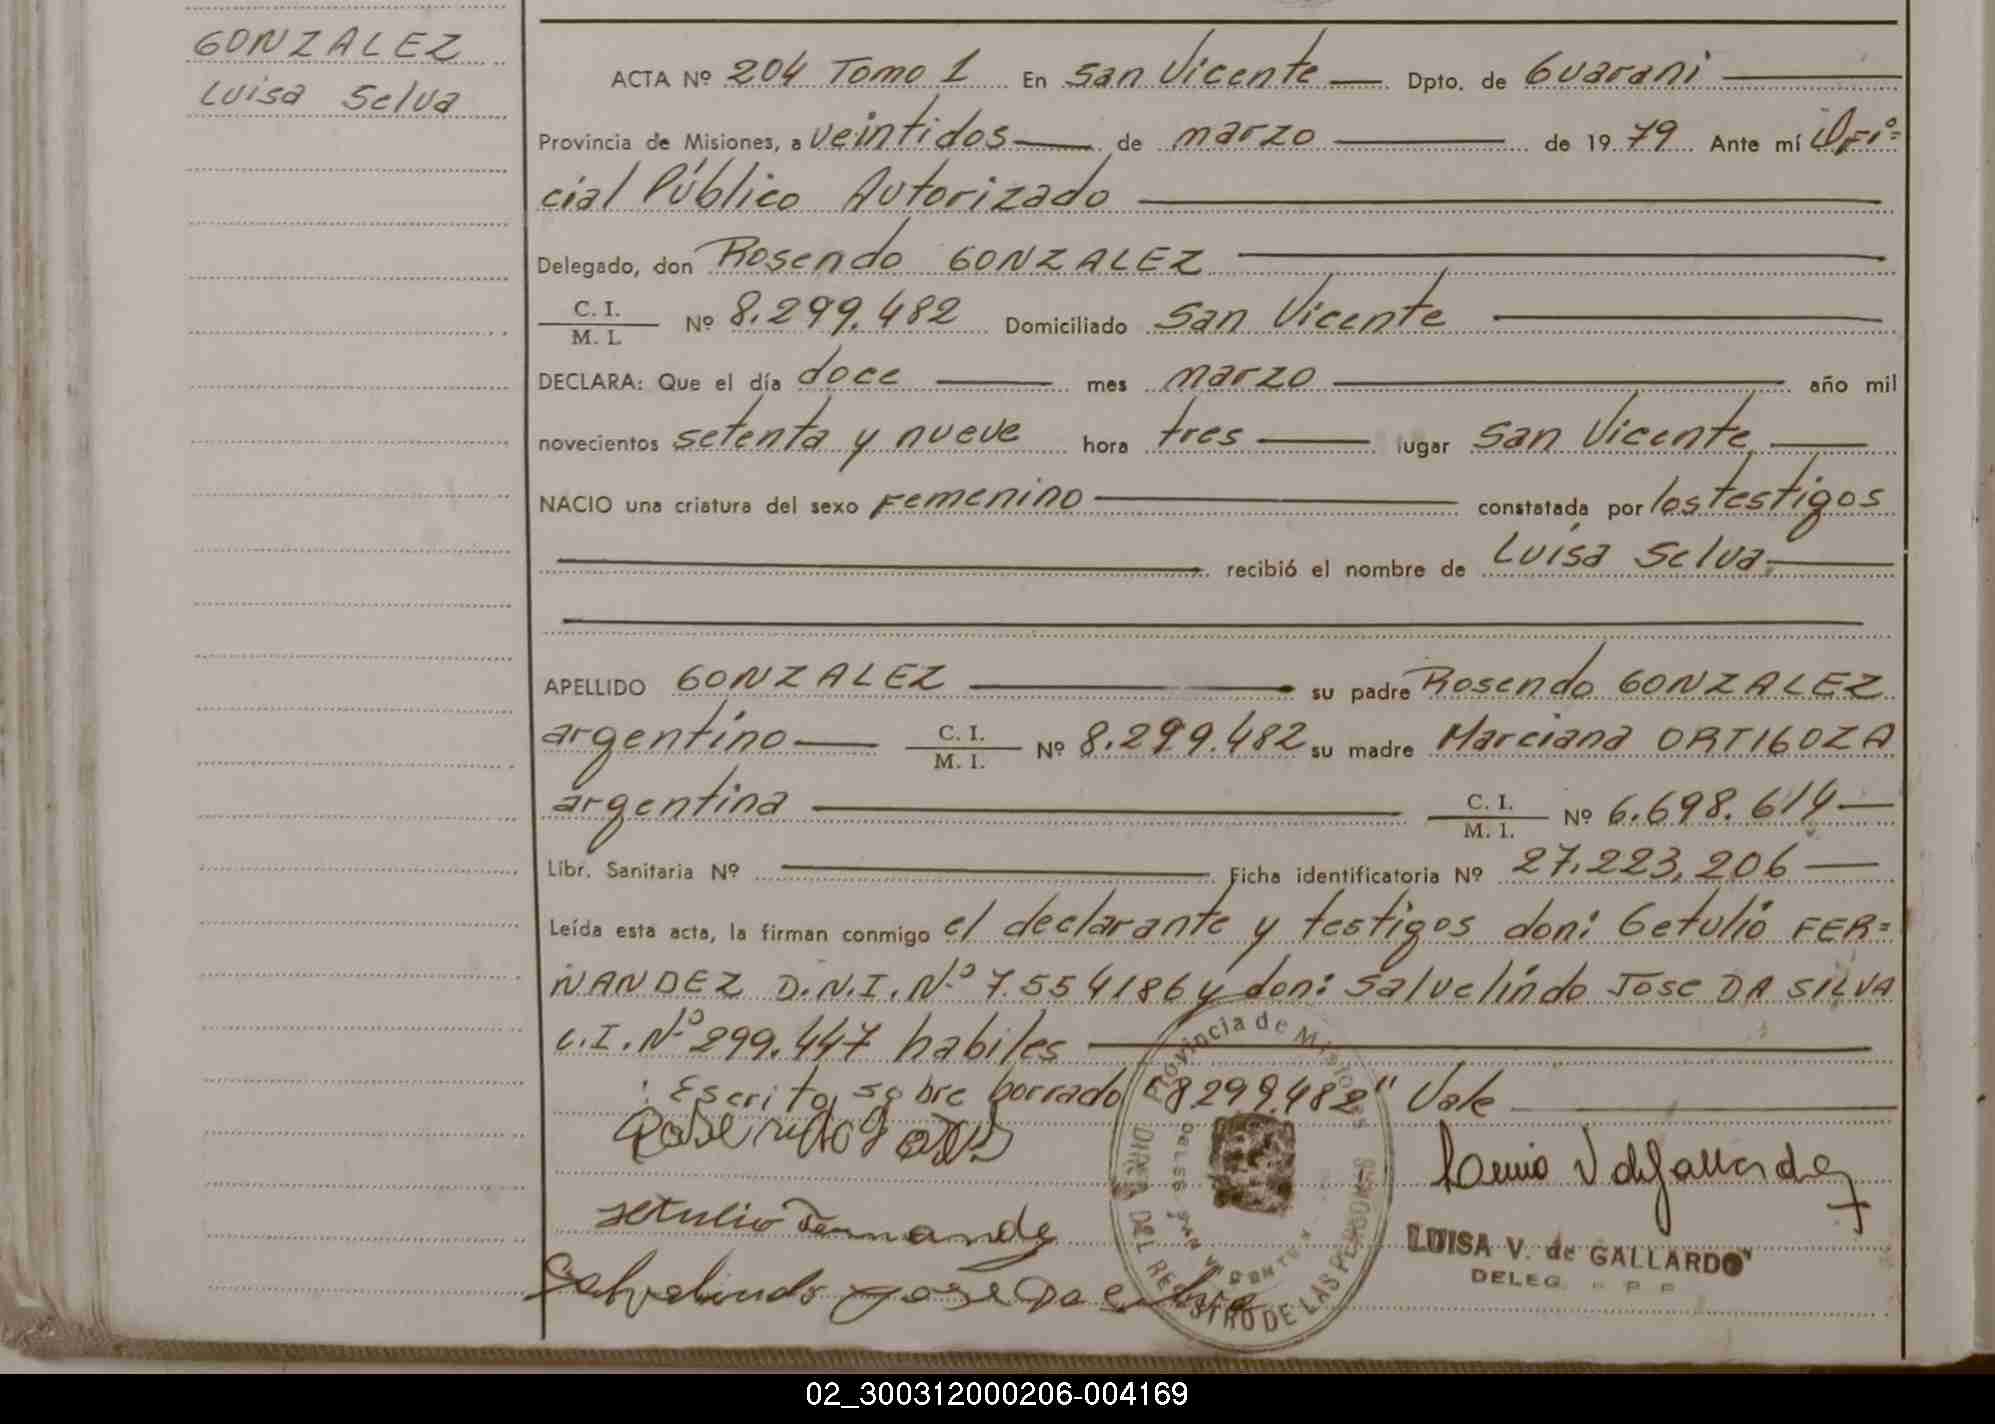 GONZALEZ
Luisa Selva
ACTA Nº 204 Tomo 1 En San Vicente Dpto. de Guarani
Provincia de Misiones, a veintidos de marzo de 1979 Ante mí Ofi=
cial Público Autorizado
Delegado, don Rosendo GONZALEZ
C. I.
M. I. Nº 8.299.482 Domiciliado San Vicente
DECLARA: Que el día doce mes marzo año mil
novecientos setenta y nueve hora tres lugar San Vicente
NACIO una criatura del sexo Femenino constatada por los testigos
recibió el nombre de Luisa Selva
APELLIDO GONZALEZ su padre Rosendo GONZALEZ
argentino C. I.
M. I. Nº 8.299.482 su madre Marciana ORTIGOZA
argentina C. I.
M. I. Nº 6.698.614
Libr. Sanitaria Nº Ficha identificatoria Nº 27.223.206
Leída esta acta, la firman conmigo el declarante y testigos don: Getulio FER=
NANDEZ D.N.I. Nº 7.554186 y don: Salvelindo Jose DA SILVA
C.I. Nº 299.447 habiles
: Escrito sobre borrado "8.299.482" Vale
Getulio Fernandez
Salvelindo Jose Da Silva
Provincia de Misiones
DIREC. DEL REGISTRO DE LAS PERSONAS
SAN VICENTE
LUISA V. de GALLARDO
DELEG.
02_300312000206-004169